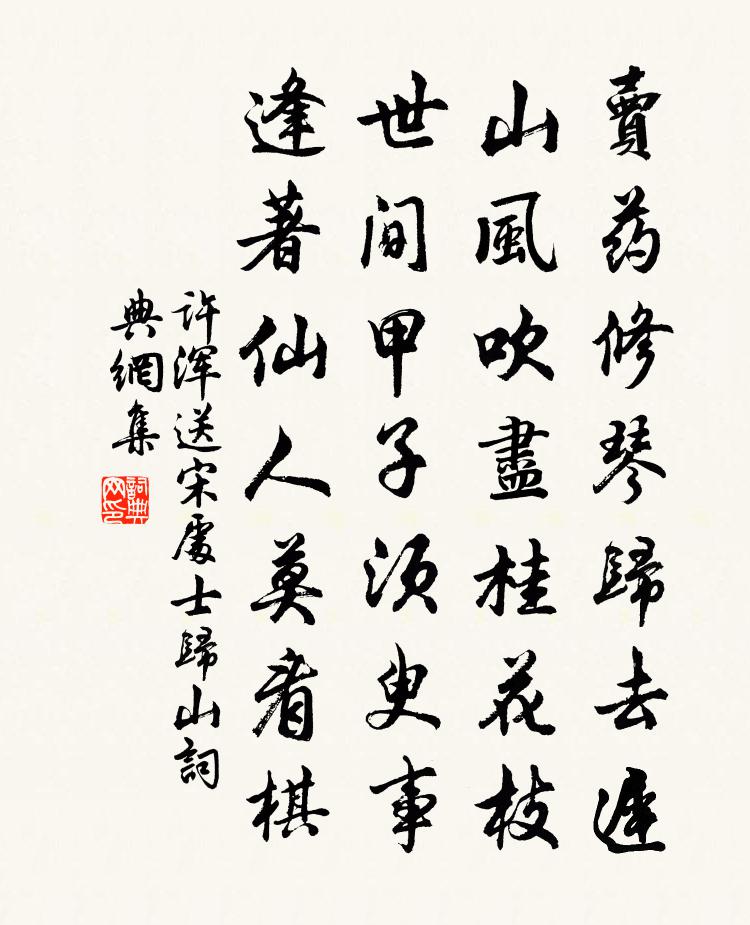 賣药修琴歸去遲
山風吹盡桂花枝
世间甲子須臾事
逢著仙人莫看棋
許渾送宋處士歸山詞
典網集
詞典
网印